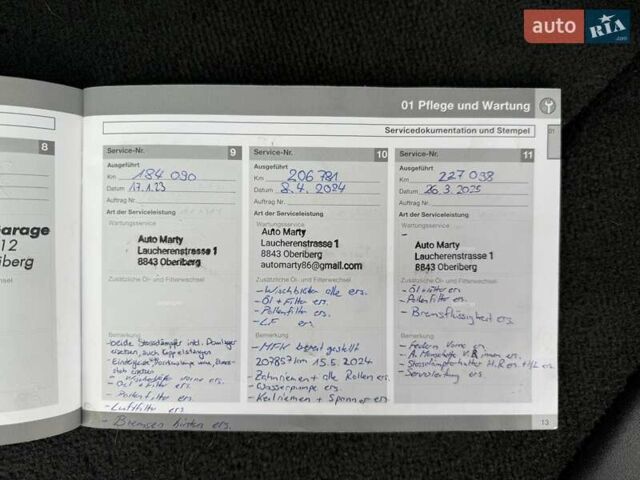 auto RIA .com
01 Pflege und Wartung
Servicedokumentation und Stempel
01
8
Garage
12
riberg
wechsel
Service-Nr. 9
Ausgeführt
Km 184 090
Datum 17.1.23
Auftrag Nr.
Art der Serviceleistung
Wartungsservice
Auto Marty
Laucherenstrasse 1
8843 Oberiberg
Zusätzliche Öl- und Filterwechsel
Bemerkung
-beide Stossdämpfer inkl. Domlager
ersetzen, auch Koppelstangen
ersetzt
- Wischblätter vorne ers.
- Oel + Filter ers.
- Pollenfilter ers.
- Luftfilter ers.
- Bremsen hinten ers.
Service-Nr. 10
Ausgeführt
Km 206 781
Datum 8.4.2024
Auftrag Nr.
Art der Serviceleistung
Wartungsservice
Auto Marty
Laucherenstrasse 1
8843 Oberiberg
automarty86@gmail.com
Zusätzliche Öl- und Filterwechsel
- Wischblätter alle ers.
- Öl + Filter ers.
- Pollenfilter ers.
- LF ers.
Bemerkung
- MFK bereit gestellt
207857 km 15.5.2024
- Zahnriemen + alle Rollen ers.
- Wasserpumpe ers.
- Keilriemen + Spanner ers.
Service-Nr. 11
Ausgeführt
Km 227 098
Datum 26.3.2025
Auftrag Nr.
Art der Serviceleistung
Wartungsservice
Auto Marty
Laucherenstrasse 1
8843 Oberiberg
Zusätzliche Öl- und Filterwechsel
- Öl + Filter ers.
- Pollenfilter ers.
- Bremsflüssigkeit ers.
Bemerkung
- Federn vorne ers.
- A. Manschette V.R. innen ers.
- Stossdämpferhalter H.R ers. + H.L ers.
- Servoleitung ers.
13